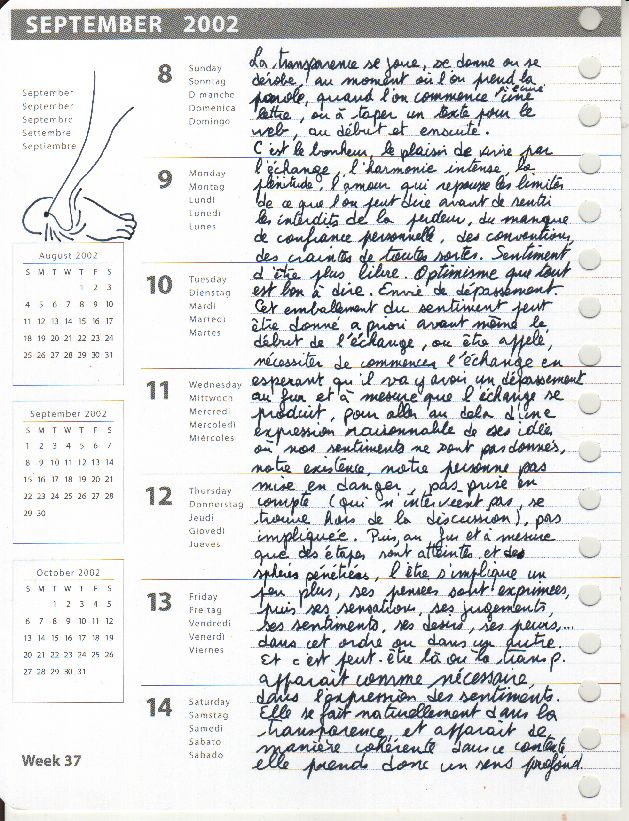 SEPTEMBER 2002
September
September
Septembre
Settembre
Septiembre
August 2002
S M T W T F S
1 2 3
4 5 6 7 8 9 10
11 12 13 14 15 16 17
18 19 20 21 22 23 24
25 26 27 28 29 30 31
September 2002
S M T W T F S
1 2 3 4 5 6 7
8 9 10 11 12 13 14
15 16 17 18 19 20 21
22 23 24 25 26 27 28
29 30
October 2002
S M T W T F S
1 2 3 4 5
6 7 8 9 10 11 12
13 14 15 16 17 18 19
20 21 22 23 24 25 26
27 28 29 30 31
Week 37
8
Sunday
Sonntag
Dimanche
Domenica
Domingo
9
Monday
Montag
Lundi
Lunedi
Lunes
10
Tuesday
Dienstag
Mardi
Martedi
Martes
11
Wednesday
Mittwoch
Mercredi
Mercoledi
Miércoles
12
Thursday
Donnerstag
Jeudi
Giovedi
Jueves
13
Friday
Freitag
Vendredi
Venerdi
Viernes
14
Saturday
Samstag
Samedi
Sabato
Sabado
La transparence se joue, se donne ou se
dérobe, au moment où l'on prend la
parole, quand l'on commence d'une
lettre, ou à taper un texte pour le
web, au début et ensuite.
C'est le bonheur, le plaisir de vivre par
l'échange, l'harmonie intense, la
plénitude, l'amour qui repousse les limites
de ce que l'on peut dire avant de sentir
les interdits de la pudeur, du manque
de confiance personnelle, des conventions,
des craintes de toutes sortes. Sentiment
d'être plus libre. Optimisme que tout
est bon à dire. Envie de dépassement.
Cet emballement du sentiment peut
être donné a priori avant même le
début de l'échange, ou être appelé,
nécessiter de commencer l'échange en
espérant qu'il va y avoir un dépassement
au fur et à mesure que l'échange se
produit, pour aller au delà d'une
expression raisonnable de ses idées
où nos sentiments ne sont pas donnés,
notre existence, notre personne pas
mise en danger, pas prise en
compte (qui n'intervient pas, se
trouve hors de la discussion), pas
impliquée. Puis, au fur et à mesure
que des étapes sont atteintes et des
sphères pénétrées, l'être s'implique un
peu plus, ses pensées sont exprimées,
puis ses sensations, ses jugements,
ses sentiments, ses désirs, ses peurs,...
dans cet ordre ou dans un autre.
Et c'est peut-être là où la transp.
apparaît comme nécessaire
dans l'expression des sentiments.
Elle se fait naturellement dans la
transparence, et apparaît de
manière cohérente dans ce contexte
elle prend donc un sens profond.